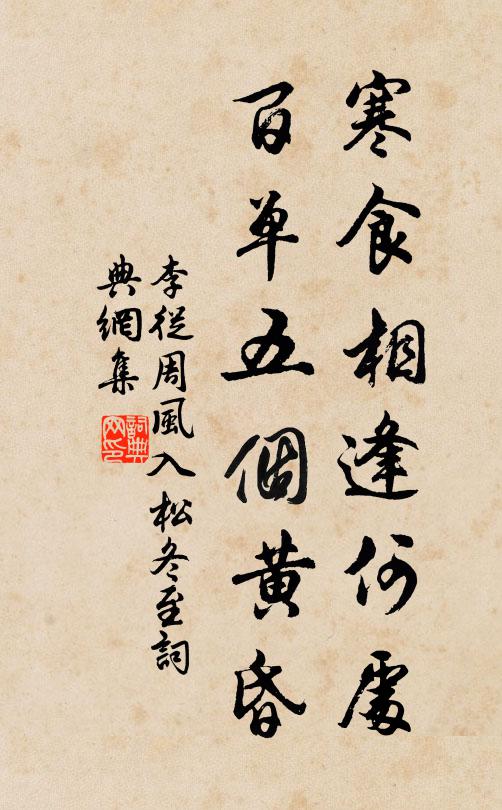 寒食相逢何處
百单五個黄昏
李從周風入松冬至詞
典網集
詞典
网印